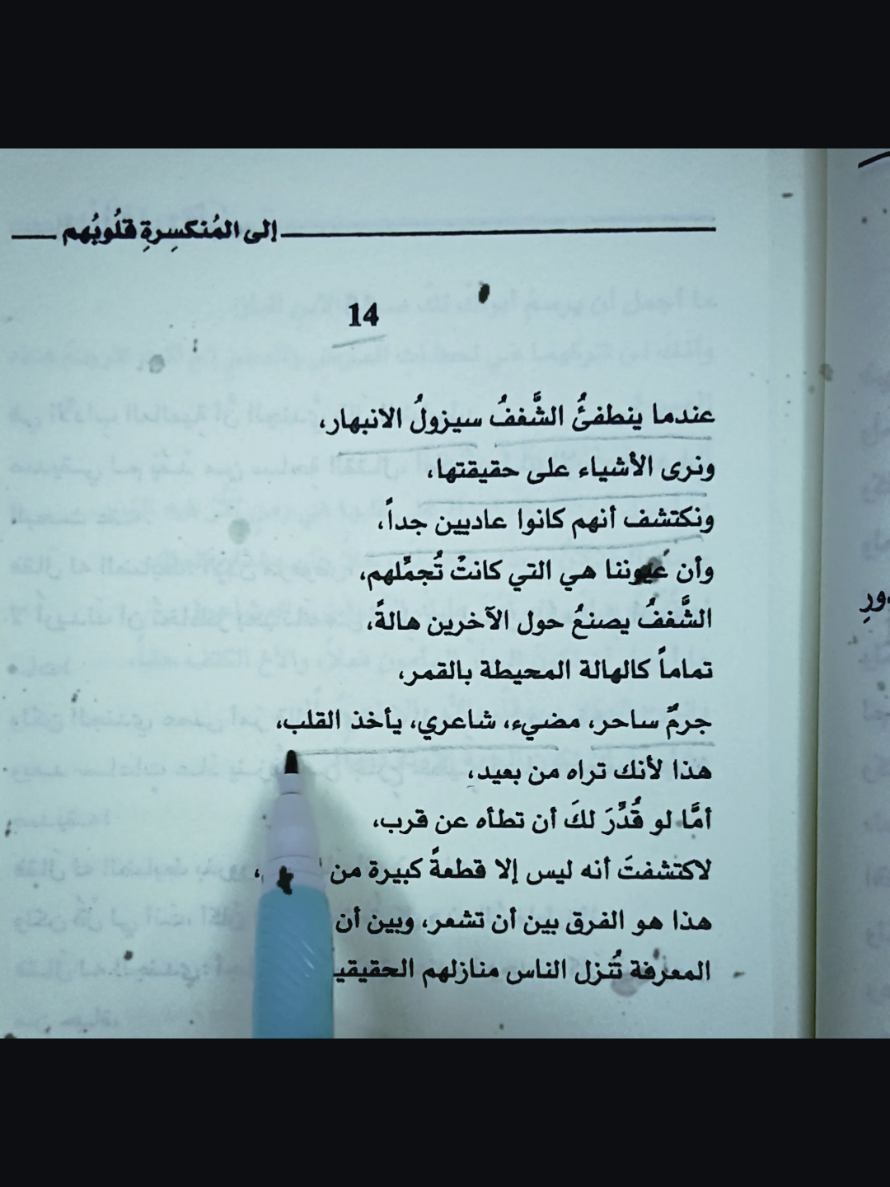 إلى المُنكسِرةِ قلُوبُهم
14
عندما ينطفئُ الشَّغفُ سيزولُ الانبهار،
ونرى الأشياء على حقيقتها،
ونكتشف أنهم كانوا عاديين جداً،
وأن عيوننا هي التي كانتْ تُجمِّلهم،
الشَّغفُ يصنعُ حول الآخرين هالةً،
تماماً كالهالة المحيطة بالقمر،
جرمٌ ساحر، مضيء، شاعري، يأخذ القلب،
هذا لأنك تراه من بعيد،
أمَّا لو قُدِّرَ لكَ أن تطأه عن قرب،
لاكتشفتَ أنه ليس إلا قطعةً كبيرة من
هذا هو الفرق بين أن تشعر، وبين أن
المعرفة تُنزل الناس منازلهم